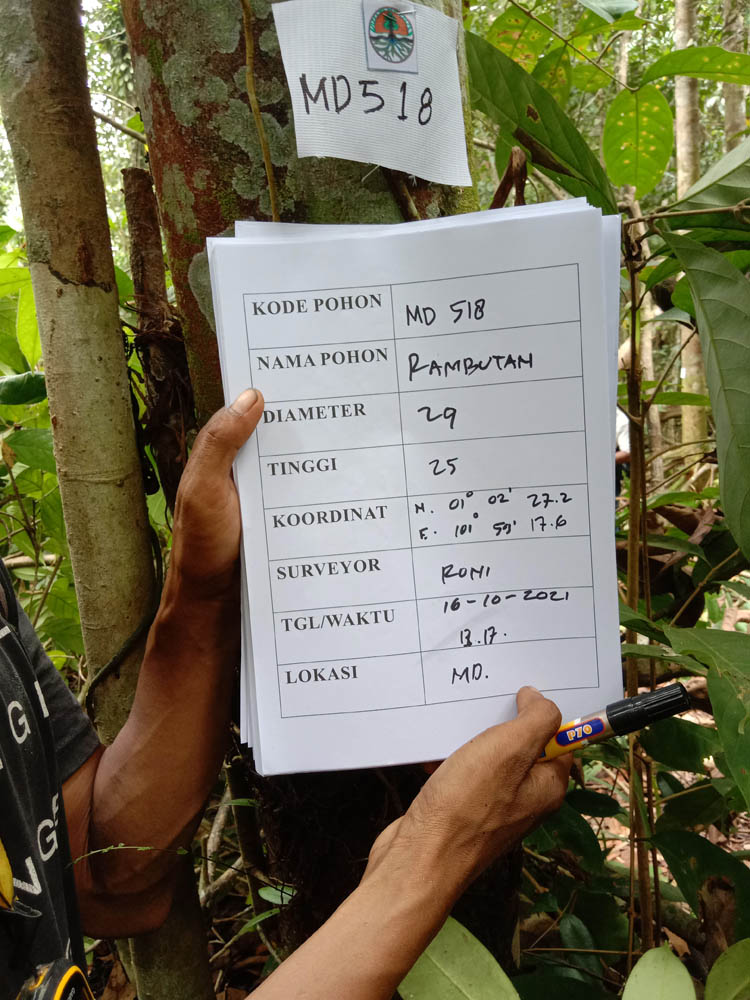 MD518
KODE POHON MD 518
NAMA POHON RAMBUTAN
DIAMETER 29
TINGGI 25
KOORDINAT N. 01° 02' 27.2
E. 101° 59' 17.6
SURVEYOR RONI
TGL/WAKTU 16-10-2021
13.17.
LOKASI MD.
P70